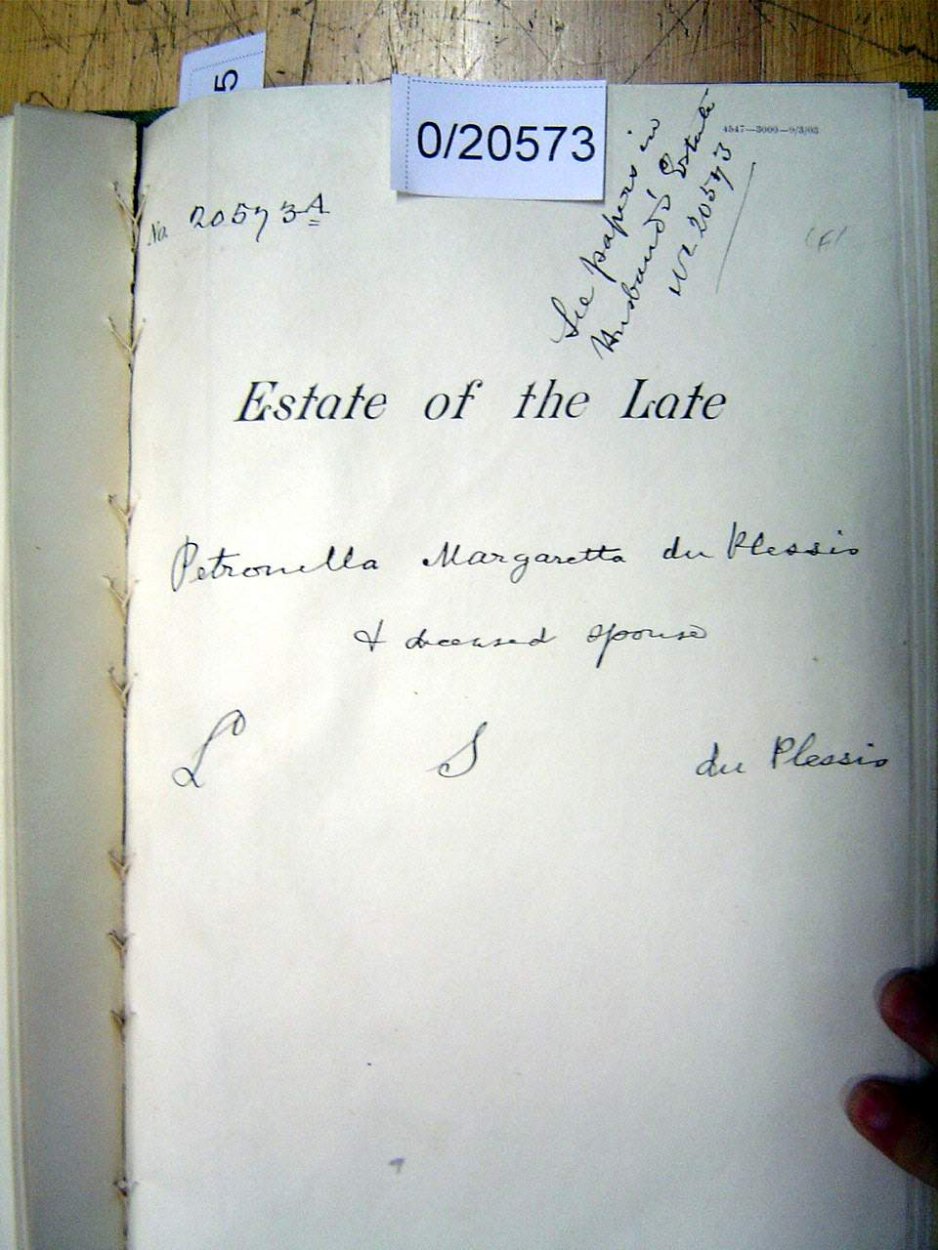 5
0/20573
4547—3000—9/3/03
No. 20573A
See papers in
Husband's Estate
No 20573
(F)
Estate of the Late
Petronella Margaretta du Plessis
& deceased spouse
L S du Plessis